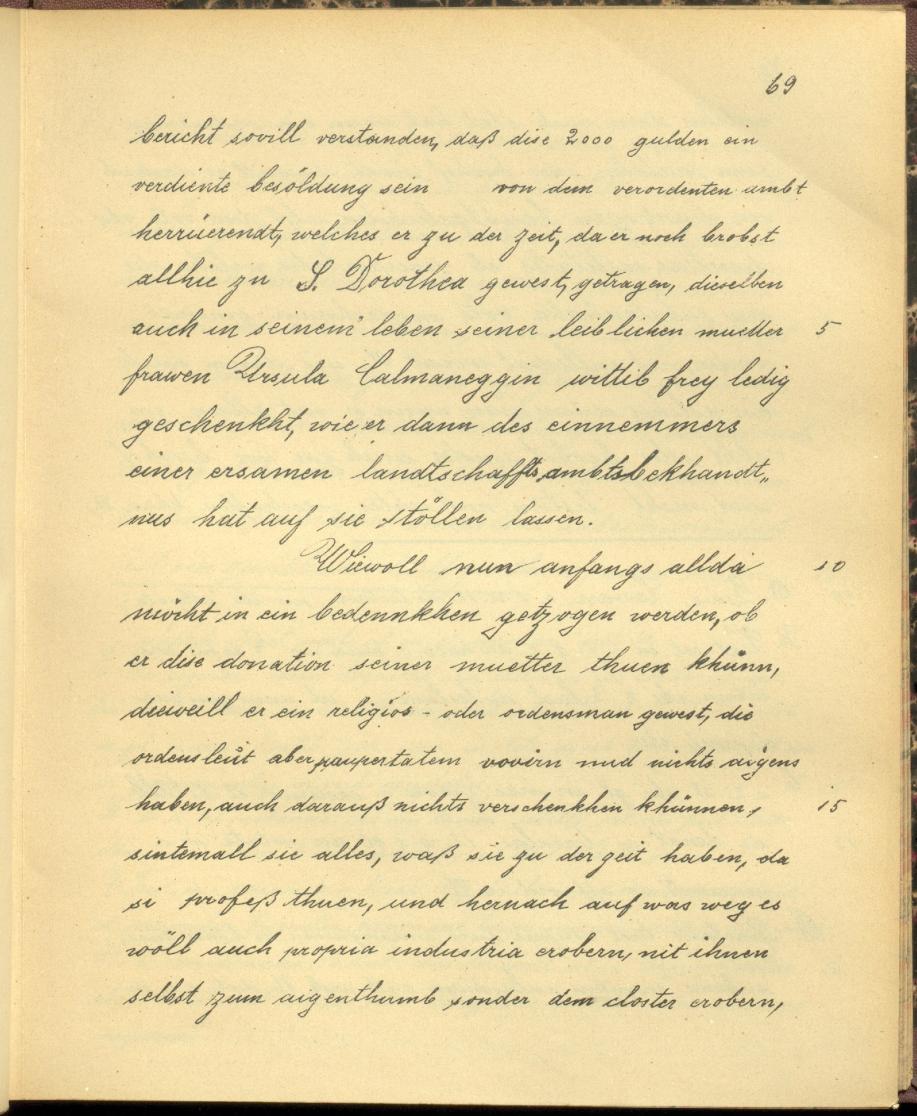 69
bericht sovill verstanden, daß dise 2000 gulden ein
verdiente besöldung sein von dem verordenten ambt
herrüerendt, welches er zu der zeit, da er noch brobst
allhie zu S. Dorothea gewest, getragen, dieselben
auch in seinem leben seiner leiblichen muetter 5
frawen Ursula Calmaneggin wittib frey ledig
geschenkht, wie er dann des einnemmers
einer ersamen landtschaffts ambtsbekhandt„
nus hat auf sie stöllen lassen.
Wiewoll nun anfangs allda 10
möcht in ein bedennkhen getzogen werden, ob
er dise donation seiner muetter thuen khünn,
dieweill er ein religios - oder ordensman gewest, die
ordensleüt aber paupertatem vovirn und nichts aigens
haben, auch darauß nichts verschenkhen khünnen, 15
sintemall sie alles, waß sie zu der zeit haben, da
si profeß thuen, und hernach auf was weg es
wöll auch propria industria erobern, nit ihnen
selbst zum aigenthumb sonder dem closter erobern,